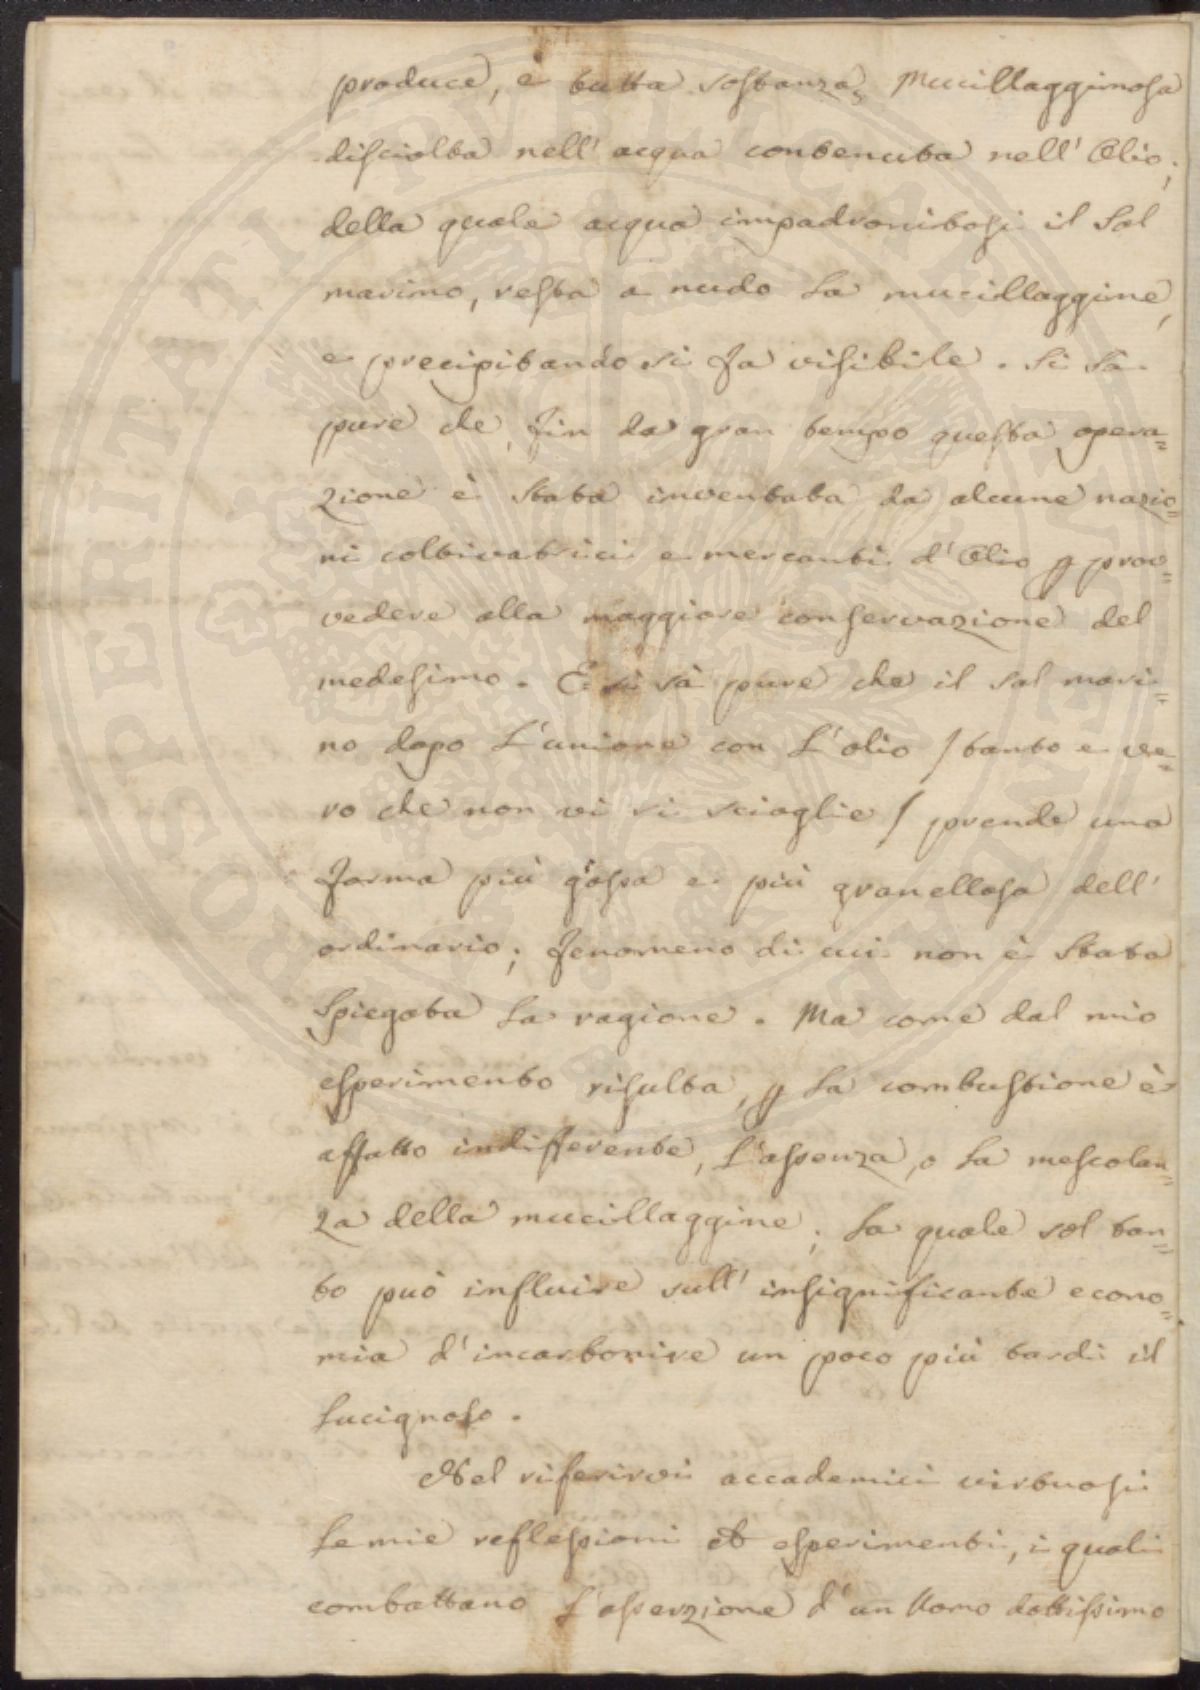 produce, è tutta sostanza Mucillagginosa
disciolta nell' acqua contenuta nell' Olio;
della quale acqua impadronitosi il Sal
marino, resta a nudo la mucillaggine,
e precipitando si fa visibile. Si sa
pure che fin da gran tempo questa opera=
zione è stata inventata da alcune nazio=
ni coltivatrici e mercanti d' Olio p prov=
vedere alla maggiore conservazione del
medesimo. E si sà pure che il sal mari=
no dopo l'unione con l'olio / tanto e ve=
ro che non vi si scioglie / prende una
forma più grossa e più granellosa dell'
ordinario; fenomeno di cui non è stata
spiegata la ragione. Ma come dal mio
esperimento risulta, p la combustione è
affatto indifferente, l'assenza, o la mescolan=
za della mucillaggine; la quale sol tan=
to può influire sull' insignificante econo=
mia d' incarbonire un poco più tardi il
lucignolo.
Nel riferirvi accademici virtuosi
le mie reflessioni ed esperimenti, i quali
combattano l'asserzione d' un Uomo dottissimo
PROSPERITATI PVBLICAE AVGENDAE